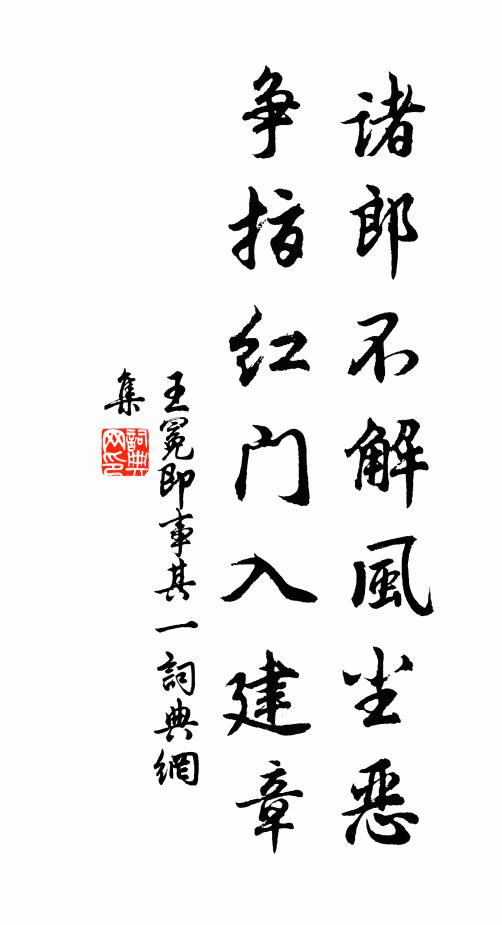 诸郎不解風尘恶
争指红门入建章
王冕即事其一詞典網
集
詞典
网印